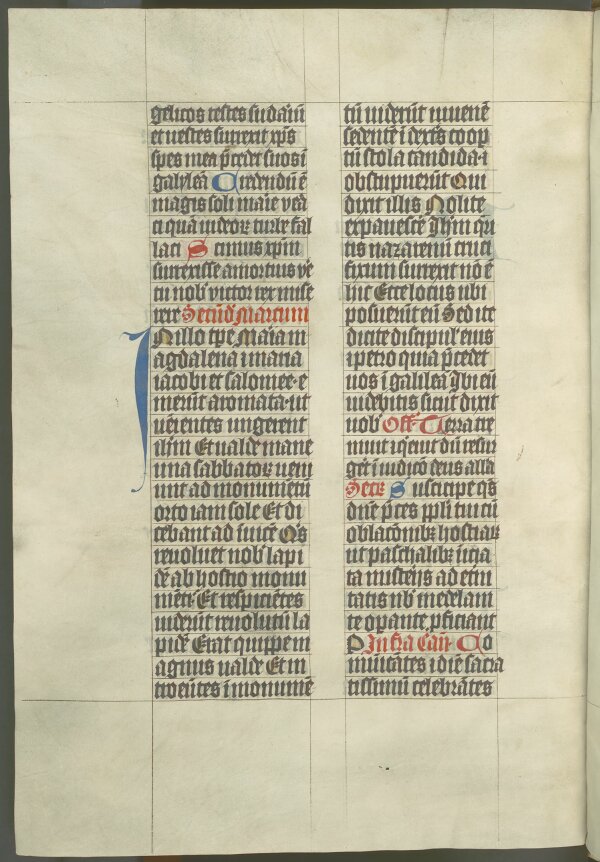 gelicos testes sudariū
et vestes surrexit xp̄s
spes mea p̄cedet suos ī
galylea Credendū ē
magis soli marie vera
ci quā iudeoꝝ turbe fal
laci Scimus xpm̄
surrexisse amortuis ve
tu nob̄ victor rex mise
rere Secūd̄ Marcum
In illo tp̄e Maria m
agdalena ⁊ maria
iacobi et salomee·e
merūt aromata·ut
uēientes ungerent
ih̄m Et ualde mane
una sabbatoꝝ ueni
unt ad monumētū
orto iam sole Et di
cebant ad īuicē Qⁱs
reuoluet nob̄ lapi
dē ab hostio monu
mēti Et respiciētes
uiderūt reuolutū la
pidē Erat quippe m
agnus ualde Et in
troeūtes ī monumē
tū uiderūt iuuenē
sedentē ī dext̄s coop
tū stola candida·⁊
obstupuerūt Qui
dixit illis Nolite
expauescē Ih̄m qri
tis nazarenū cruci
fixum surrexit nō ē
hic Ecce locus ubi
posuerūt eū Sed ite
dicite discipul̄ eius
⁊ petro quia p̄cedet
uos ī galilea Ibi eū
uidebitis sicut dixit
uob̄ Off̄ Terra tre
muit ⁊ qⁱeuit dū resur
get ī iudicō deus alla
Secr̄ Suscipe qs̄
dn̄e p̄ces ppl̄i tui cū
oblacōnibꝫ hostiaꝝ
ut paschalibꝫ īicia
ta mist̄ijs ad et̄ni
tatis nb̄ medelam
te opante pficiant
P Infra Can̄ Co
mūicātes ⁊ diē sacra
tissimū celebrātes